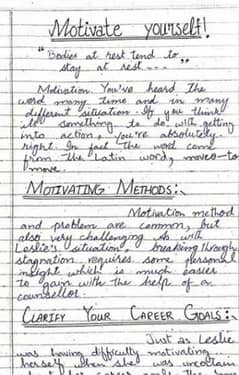 Motivate yourself!
"Bodies at rest tend to
stay at rest...."
Motivation. You've heard the
word many time and in many
different situation. If you think
it's something to do with getting
into action, you're absolutely
right. In fact the word come
from the Latin word, moves-to
move.
MOTIVATING METHODS:
Motivation method
and problem are common, but
also very challenging. As with
Leslie's situation, breaking through
stagnation requires some personal
insight which is much easier
to gain with the help of a
counsellor.
CLARIFY YOUR CAREER GOALS:
Just as Leslie
was having difficulty motivating
herself when she was uncertain
about her career goals the same